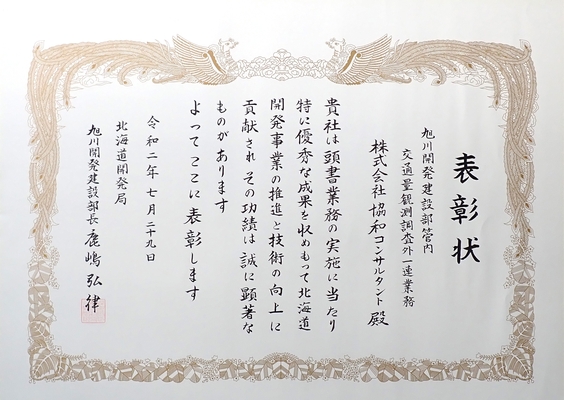 表彰状
旭川開発建設部管内
交通量観測調査外一連業務
株式会社 協和コンサルタント 殿
貴社は頭書業務の実施に当たり
特に優秀な成果を収めもって北海道
開発事業の推進と技術の向上に
貢献され その功績は 誠に顕著な
ものがあります
よってここに表彰します
令和二年七月二十九日
北海道開発局
旭川開発建設部長 鹿嶋弘律